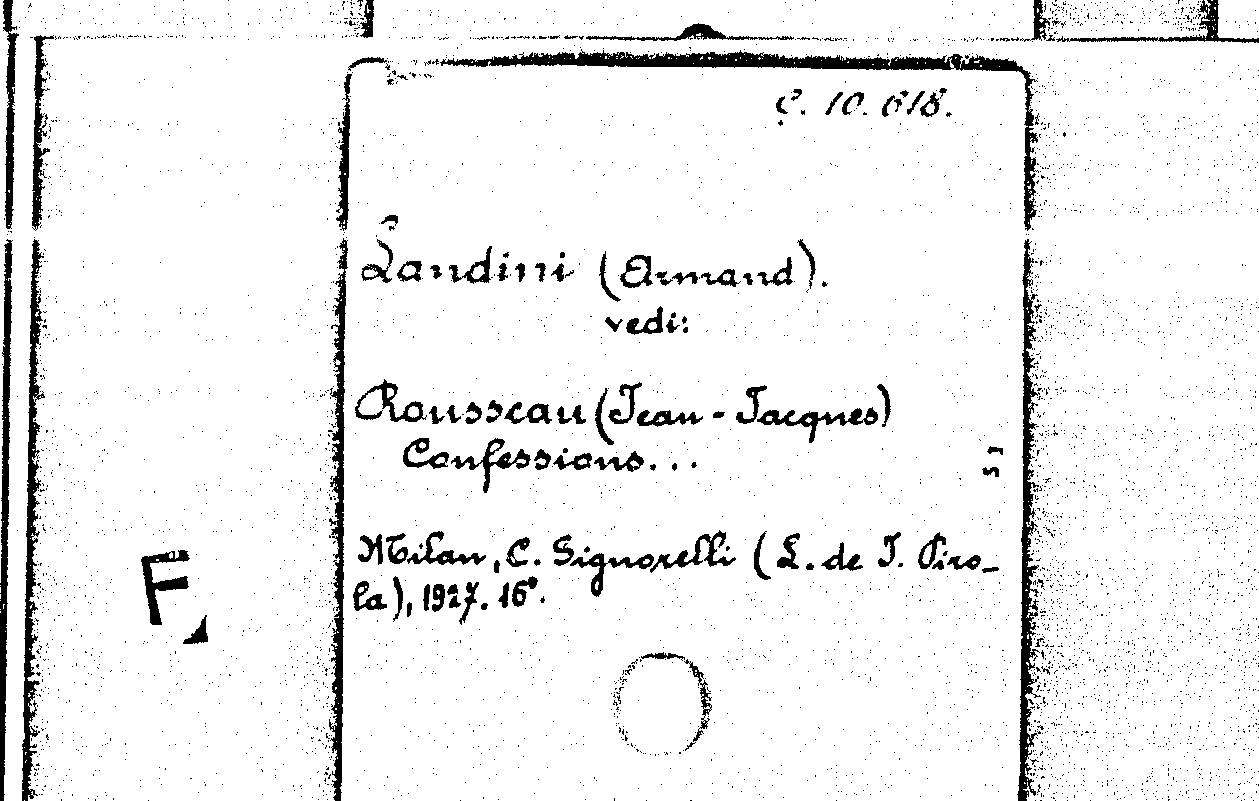 C. 10. 618.
Landini (Armand).
vedi:
Rousseau (Jean-Jacques)
Confessions...
Milan, C. Signorelli (L. de J. Piro-
la), 1927. 16°.
F